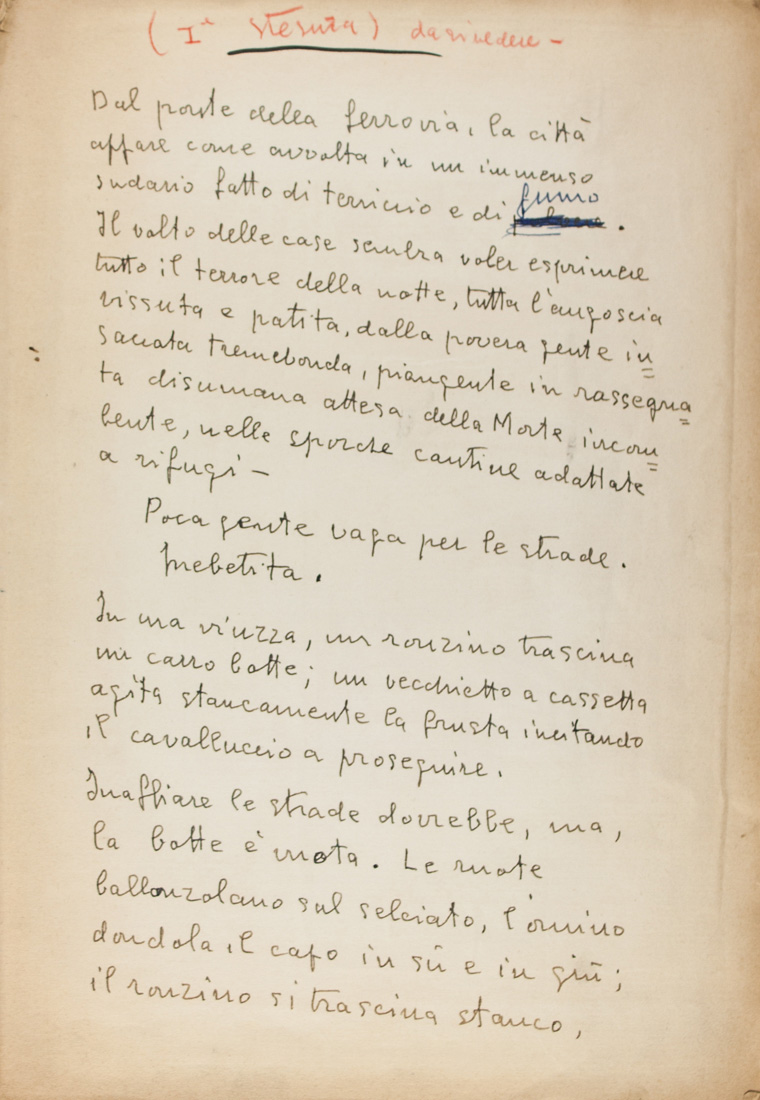 (Iª stesura) da rivedere -
Dal ponte della ferrovia, la città
appare come avvolta in un immenso
sudario fatto di terriccio e di fumo.
Il volto delle case sembra voler esprimere
tutto il terrore della notte, tutta l'angoscia
vissuta e patita, dalla povera gente in=
sacrata tremebonda, piangente in rassegna=
ta disumana attesa della Morte incom=
bente, nelle sporche cantine adattate
a rifugi -
Poca gente vaga per le strade.
Inebetita.
In una viuzza, un ronzino trascina
un carro botte; un vecchietto a cassetta
agita stancamente la frusta incitando
il cavalluccio a proseguire.
Inaffiare le strade dovrebbe, ma,
la botte è vuota. Le ruote
ballonzolano sul selciato, l'omino
dondola il capo in sù e in giù;
il ronzino si trascina stanco,